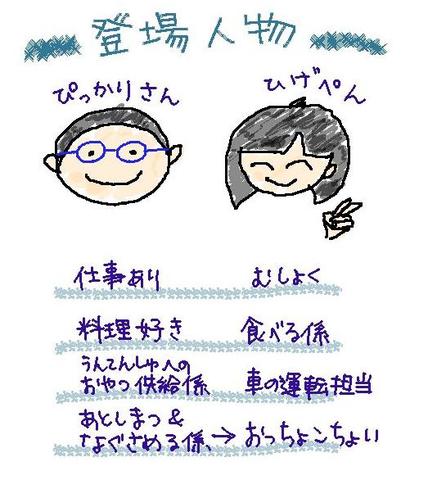 登場人物
ぴっかりさん ひげぺん
仕事あり むしょく
料理好き 食べる係
うんてんしゅへの
おやつ供給係 車の運転担当
あとしまつ&
なぐさめる係、→おっちょこちょい